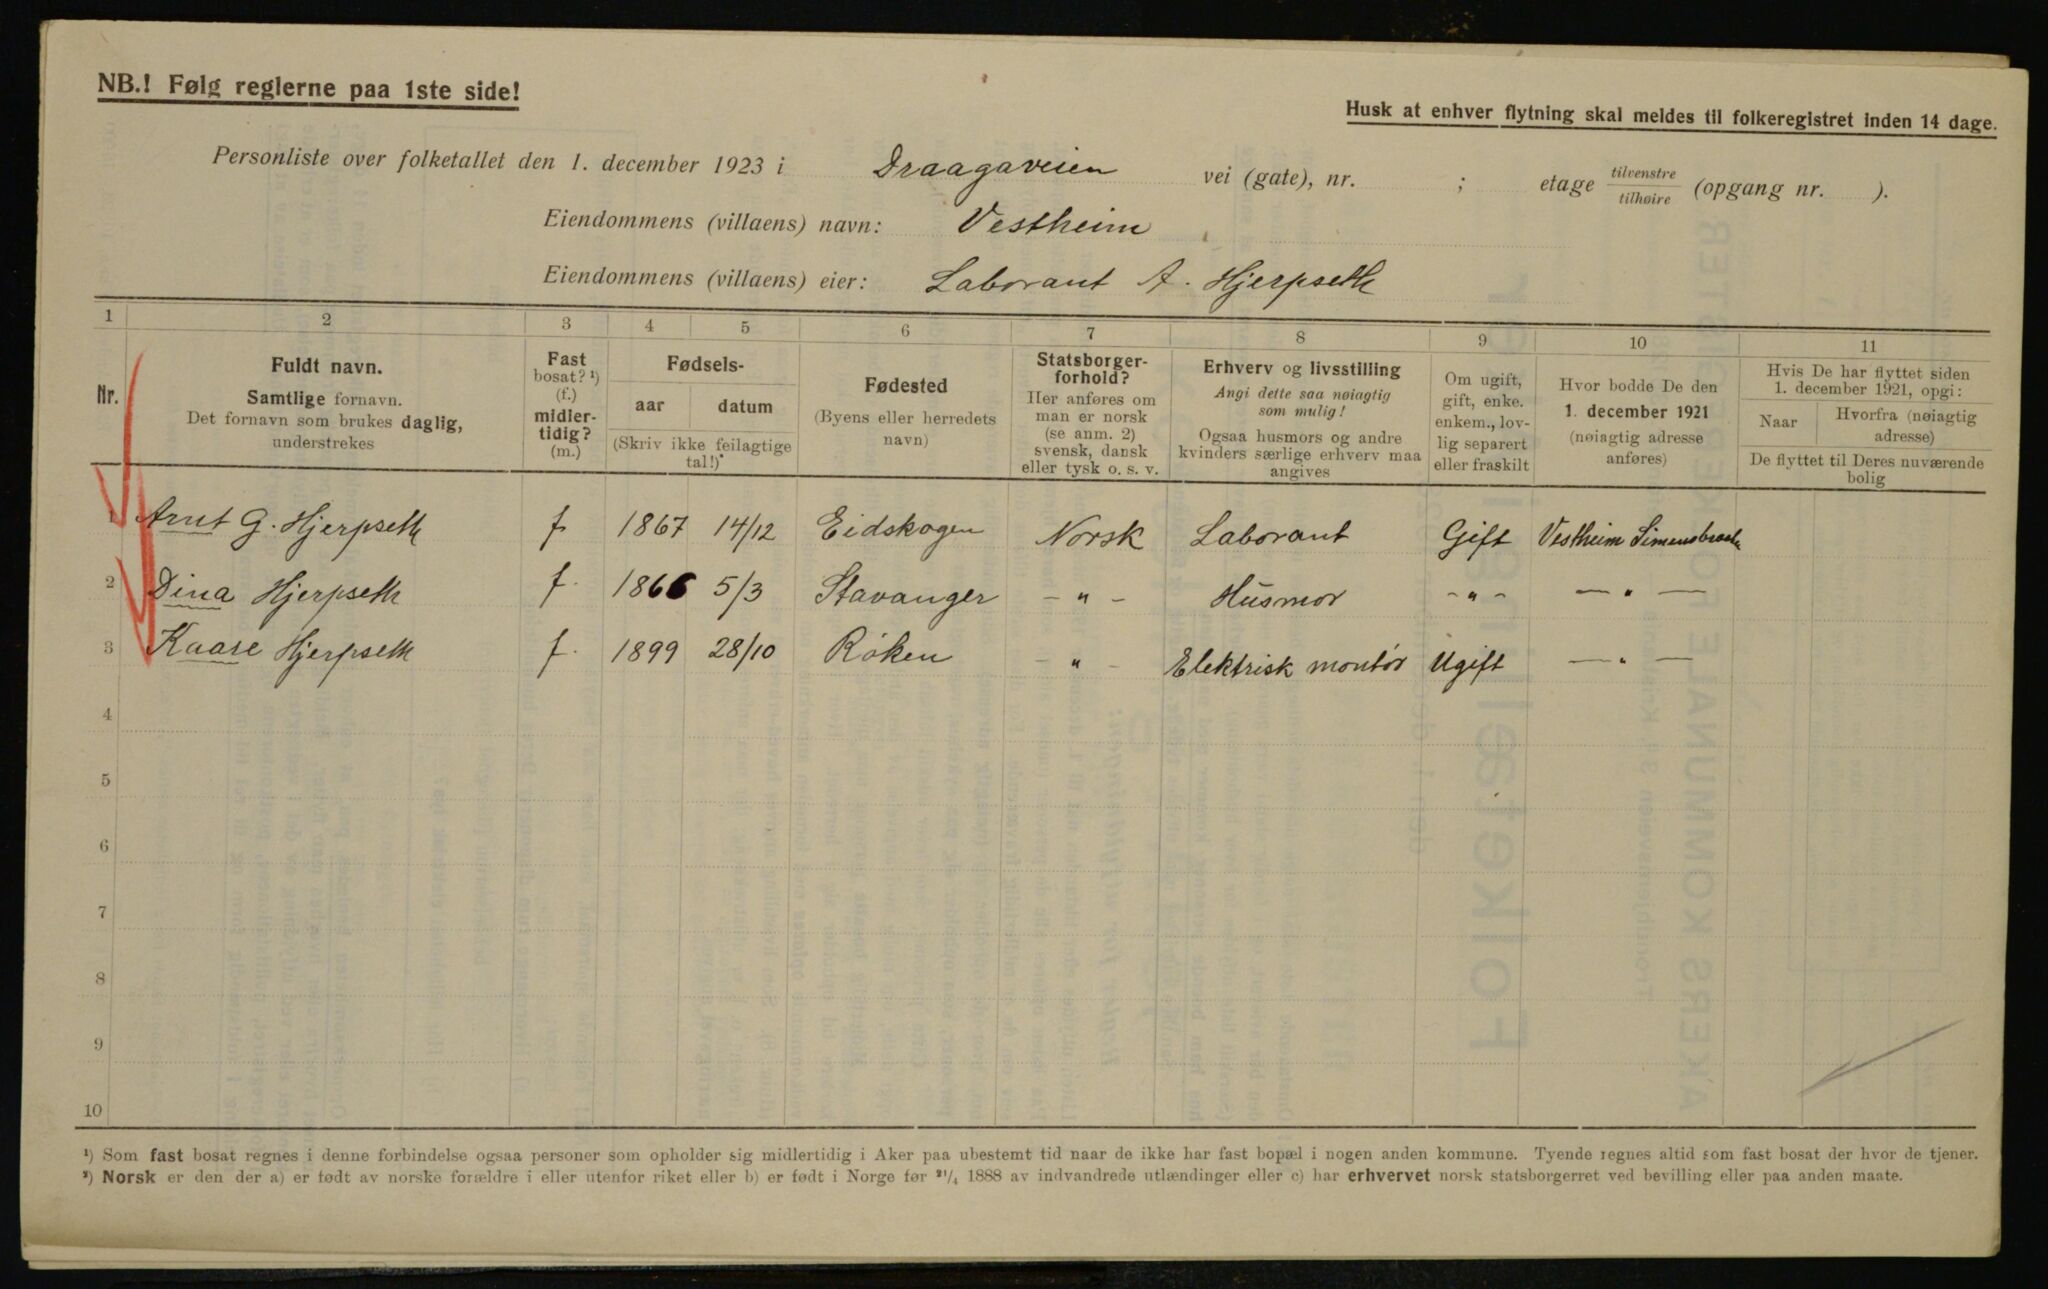 NB.! Følg reglerne paa 1ste side!
Husk at enhver flytning skal meldes til folkeregistret inden 14 dage.
Personliste over folketallet den 1. december 1923 i Draagaveien vei (gate), nr. ; etage tilvenstre/tilhøire (opgang nr. ).
Eiendommens (villaens) navn: Vestheim
Eiendommens (villaens) eier: Laborant A. Hjerpseth
1 2 3 4 5 6 7 8 9 10 11
Nr.
Fuldt navn.
Samtlige fornavn.
Det fornavn som brukes daglig,
understrekes
Fast
bosat? ¹)
(f.)
midler-
tidig?
(m.)
Fødsels-
aar datum
(Skriv ikke feilagtige
tal!)
Fødested
(Byens eller herredets
navn)
Statsborger-
forhold?
Her anføres om
man er norsk
(se anm. 2)
svensk, dansk
eller tysk o. s. v.
Erhverv og livsstilling
Angi dette saa nøiagtig
som mulig!
Ogsaa husmors og andre
kvinders særlige erhverv maa
angives
Om ugift,
gift, enke.
enkem., lov-
lig separert
eller fraskilt
Hvor bodde De den
1. december 1921
(nøiagtig adresse
anføres)
Hvis De har flyttet siden
1. december 1921, opgi:
Naar Hvorfra (nøiagtig
adresse)
De flyttet til Deres nuværende
bolig
1 Arnt G. Hjerpseth f. 1867 14/12 Eidskogen Norsk Laborant Gift Vestheim
2 Dina Hjerpseth f. 1866 5/3 Stavanger – " – Husmor – " – – " –
3 Kaare Hjerpseth f. 1899 28/10 Røken – " – Elektrisk montør Ugift – " –
4
5
6
7
8
9
10
¹) Som fast bosat regnes i denne forbindelse ogsaa personer som opholder sig midlertidig i Aker paa ubestemt tid naar de ikke har fast bopæl i nogen anden kommune. Tyende regnes altid som fast bosat der hvor de tjener.
²) Norsk er den der a) er født av norske forældre i eller utenfor riket eller b) er født i Norge før ²¹/₄ 1888 av indvandrede utlændinger eller c) har erhvervet norsk statsborgerret ved bevilling eller paa anden maate.